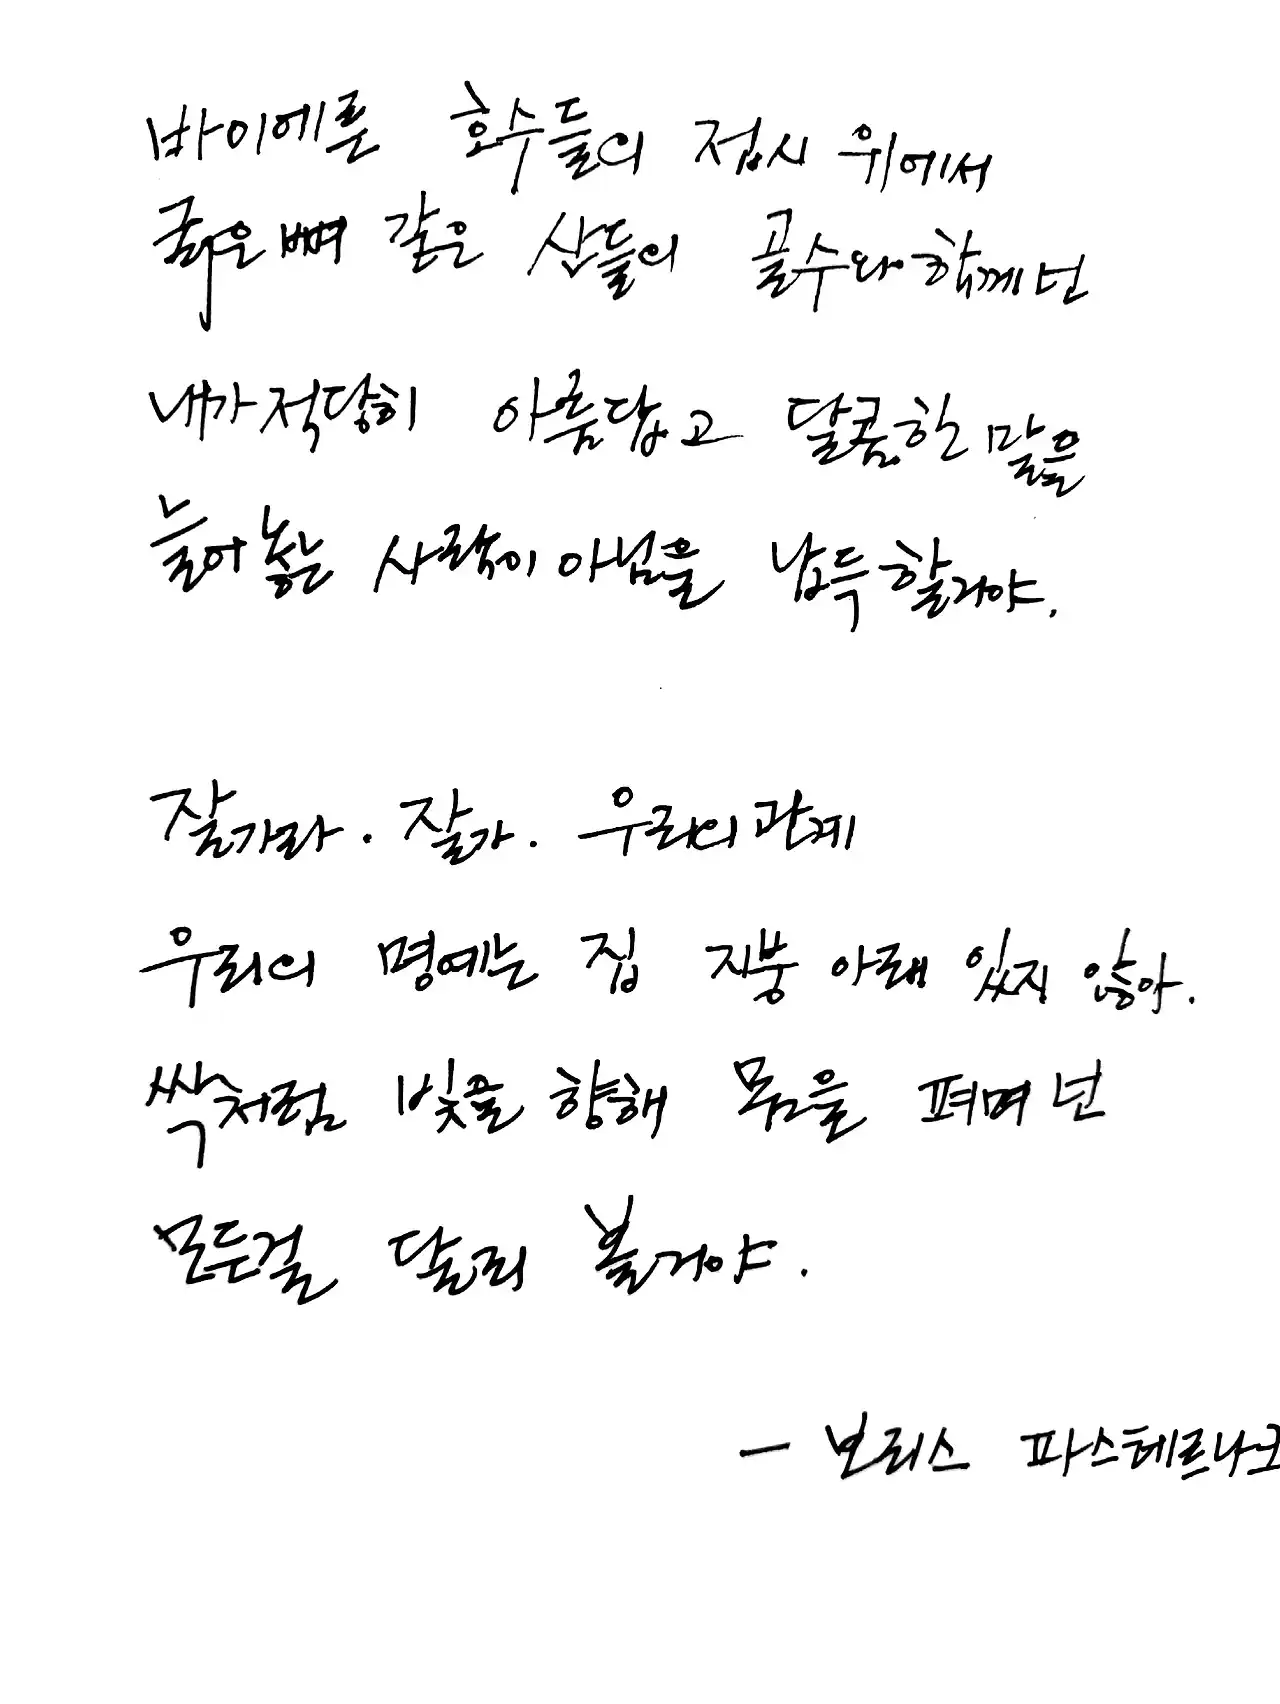 바이에른 호수들의 접시 위에서
굵은 뼈 같은 산들의 골수와 함께 넌
내가 적당히 아름답고 달콤한 말을
늘어놓는 사람이 아님을 납득할거야.
잘가라. 잘가. 우리의 관계
우리의 명예는 집 지붕 아래 있지 않아.
싹처럼 빛을 향해 몸을 펴며 넌
모든걸 달리 볼거야.
— 보리스 파스테르나크